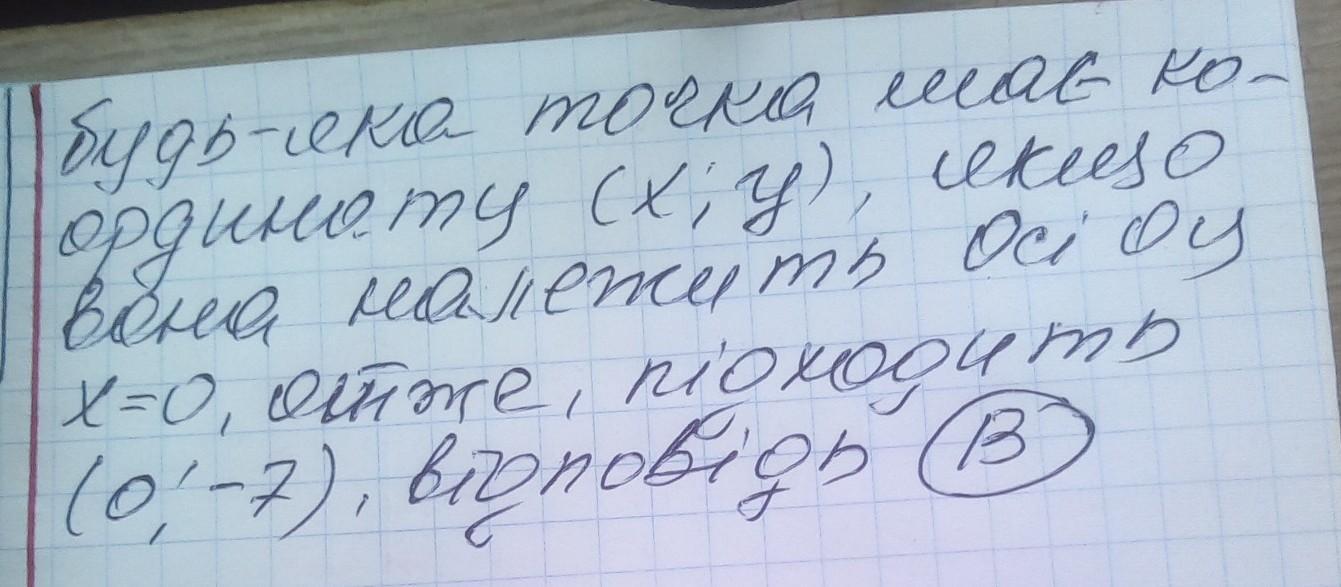 будь-яка точка має ко-
ординату (х; у), якщо
вона належить осі Оу
х=0, отже, підходить
(0; -7), відповідь В